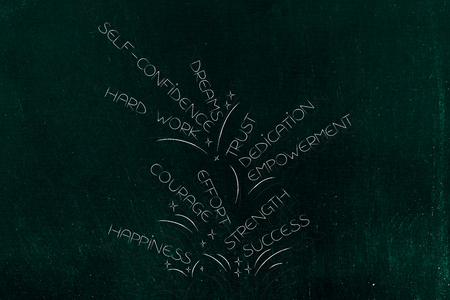 SELF-CONFIDENCE
DREAMS
HARD WORK
TRUST
DEDICATION
EMPOWERMENT
COURAGE
EFFORT
STRENGTH
HAPPINESS
SUCCESS